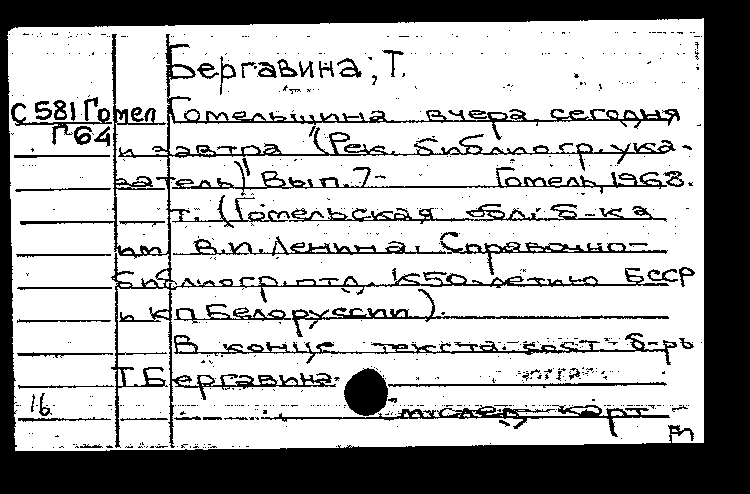 Бергавина, Т.
С 581 Гомел Гомельщина вчера, сегодня
Г 64
и завтра (Рек. библиогр. ука-
затель) Вып. 7- Гомель, 1968.
т. (Гомельская обл. б-ка
им. В.И. Ленина. Справочно-
библиогр. отд. К 50-летию БССР
и КП Белоруссии).
В конце текста: сост. б-рь
Т. Бергавина.
16
карт